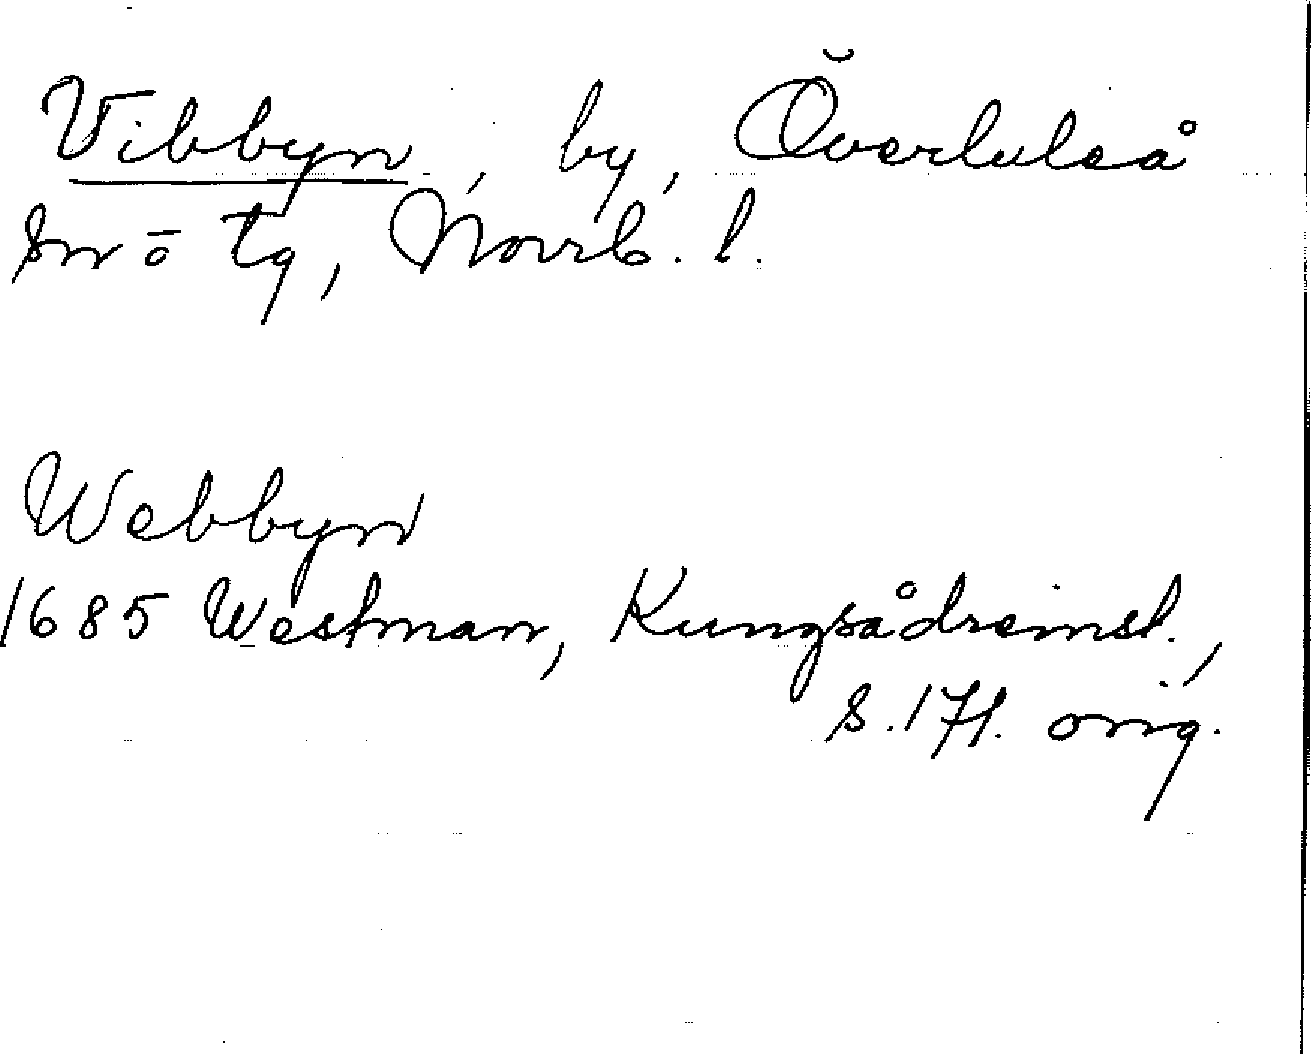 Vibbyn, by, Överluleå
sn o tg, Norrb. l.
Webbyn
1685 Westman, Kungsådreinst.,
s. 171. orig.